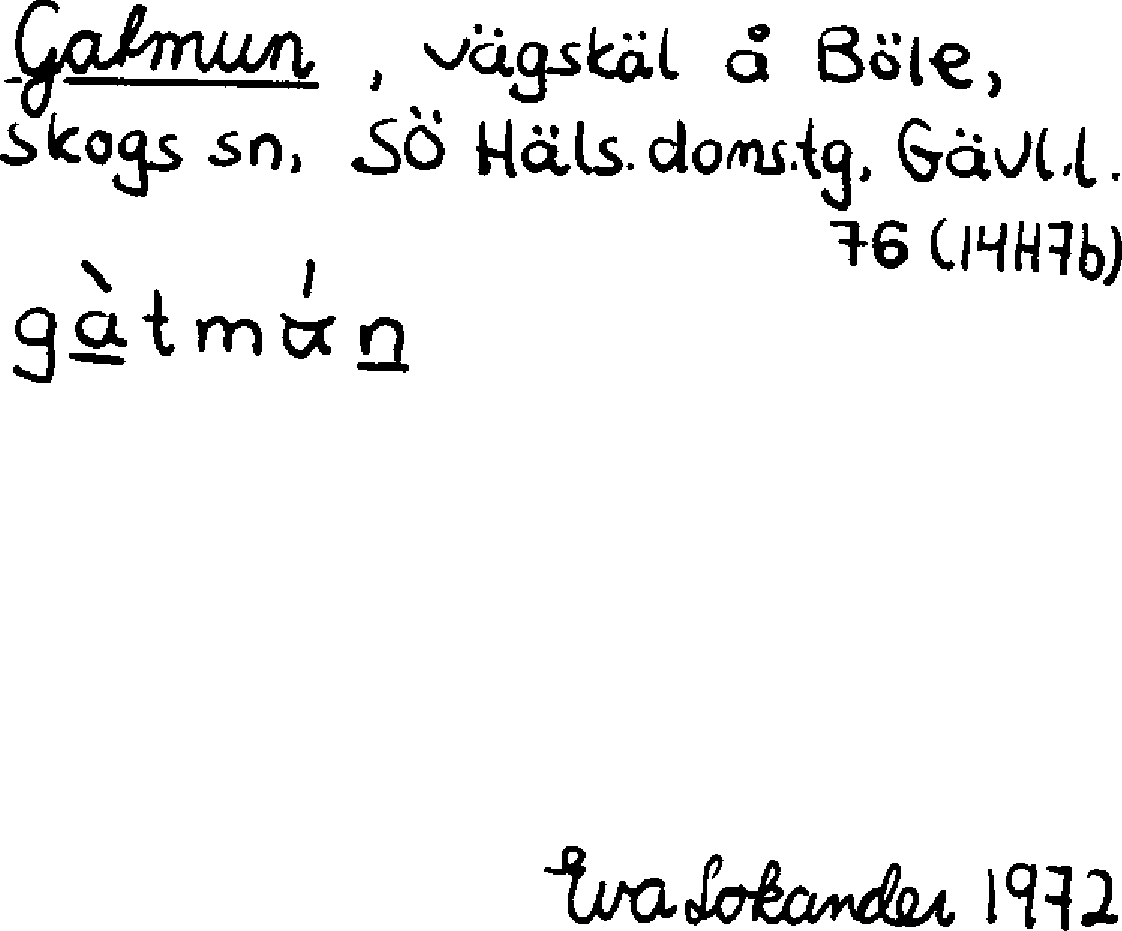 Gatmun, vägskäl å Böle,
Skogs sn, SÖ Häls. doms.tg, Gävl.l.
76 (14H7b)
gàtmán
Eva Lokander 1972